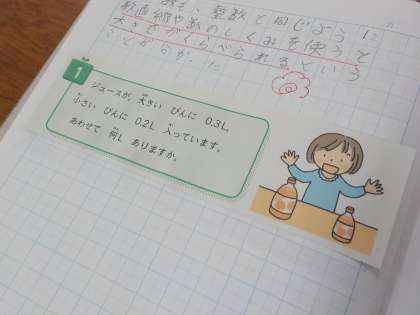 も、整数と同じように
数直線や数のしくみを使うと
大きさがくらべられるという
ことがわかった
1
ジュースが、大きい びんに 0.3L、
小さい びんに 0.2L 入っています。
あわせて 何L ありますか。